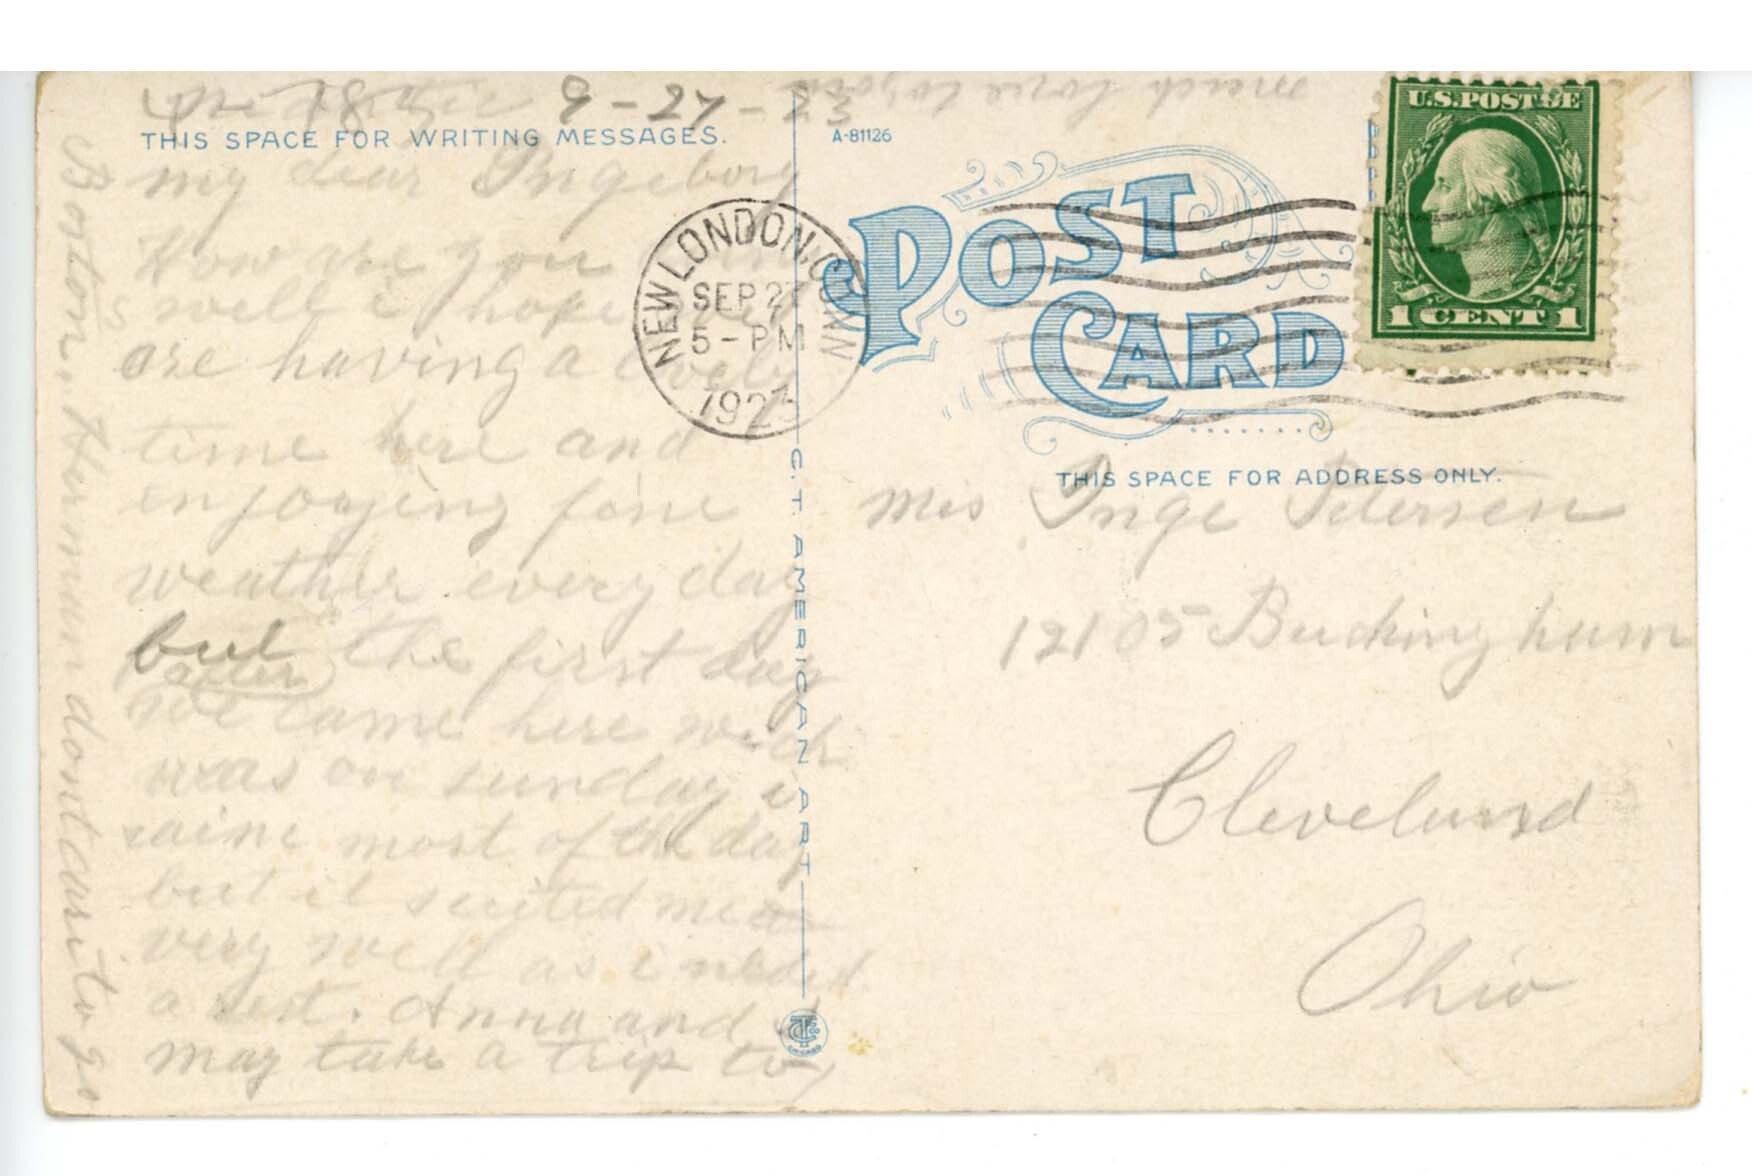 9-27-23
THIS SPACE FOR WRITING MESSAGES.
my dear Ingeborg
How are you
well i hope
are having a lovely
time here and
enjoying fine
weather every day
but the first day
after
we came here wich
was on sunday i
raint most of the day
but it suited me
very well as i needed
a rest. Anna and I
may take a trip to
Boston. Herman dont care to go
much love to you
A-81126
POST
CARD
U.S. POSTAGE
1 CENT 1
NEW LONDON, CONN
SEP 27
5-PM
1923
C.T. AMERICAN ART
THIS SPACE FOR ADDRESS ONLY.
Mis Inge Petersen
12105 Buckingham
Cleveland
Ohio
CT & CO
CHICAGO